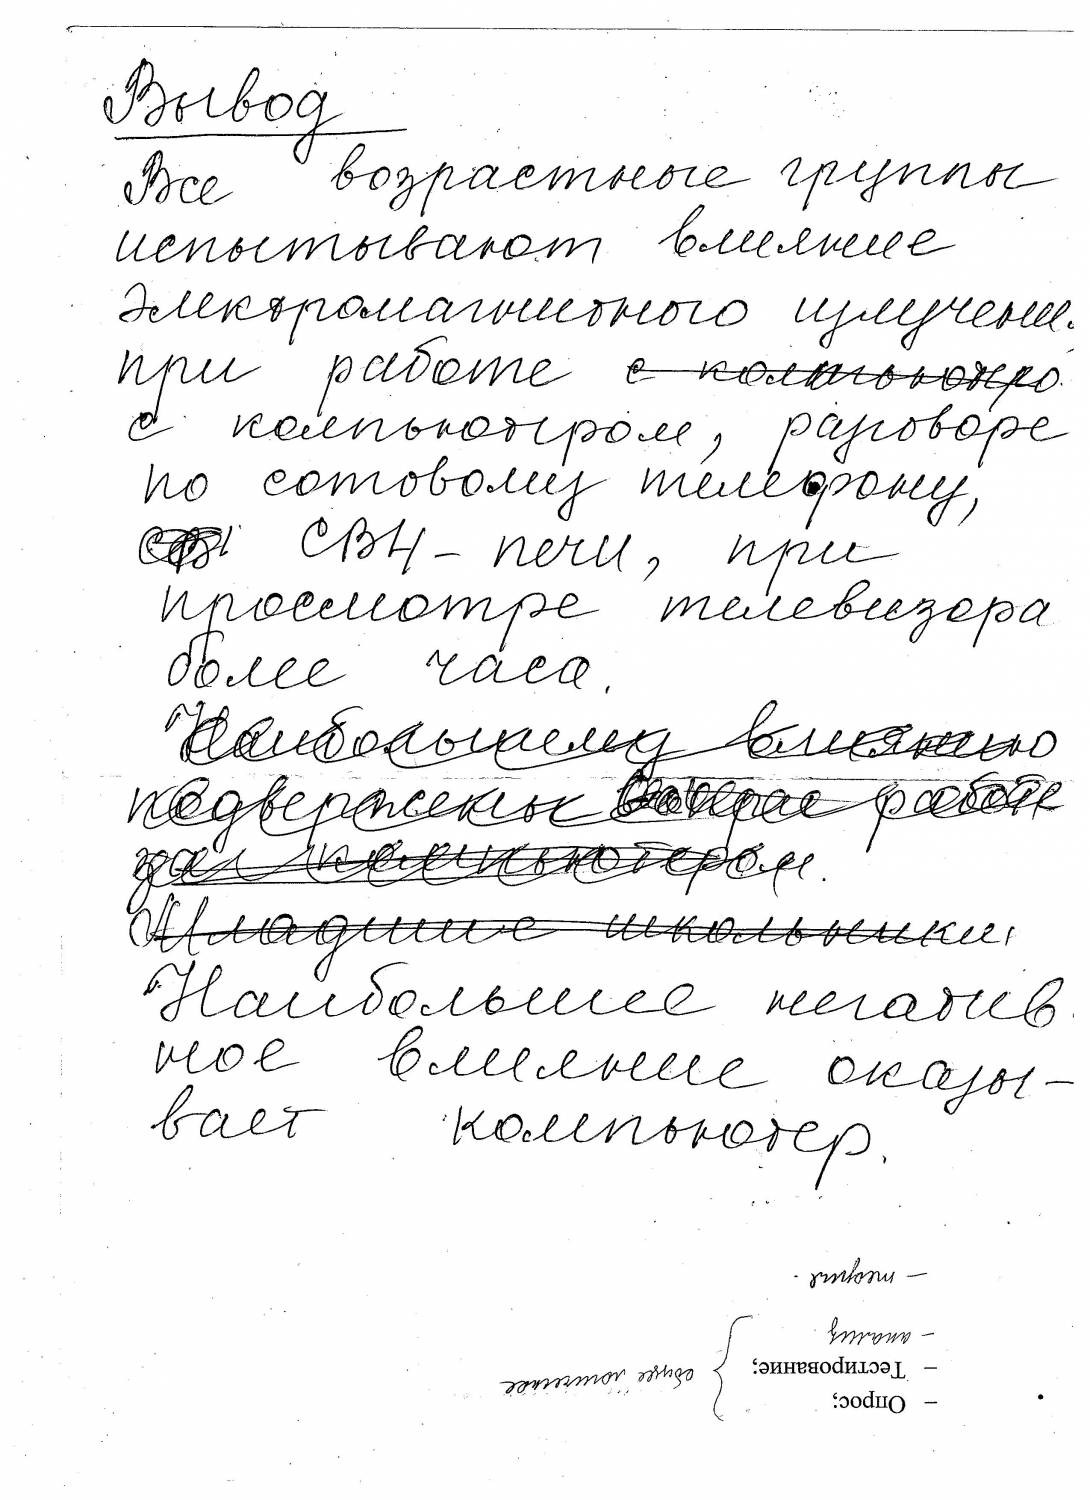 Вывод
Все возрастные группы
испытывают влияние
электромагнитного излучени
при работе с компьютеро
с компьютером, разговоре
по сотовому телефону,
СВЧ – печи, при
просмотре телевизора
более часа.
Наибольшему влиянию
подвержены работе
за компьютером.
Младшие школьники
Наибольшее негатив
ное влияние оказы–
вает компьютер.
– Опрос;
– Тестирование;
– анализ
общее
– теория